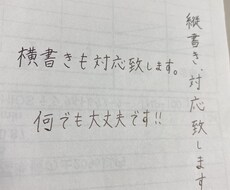 縦書き、対応致します
横書きも対応致します。
何でも大丈夫です!!